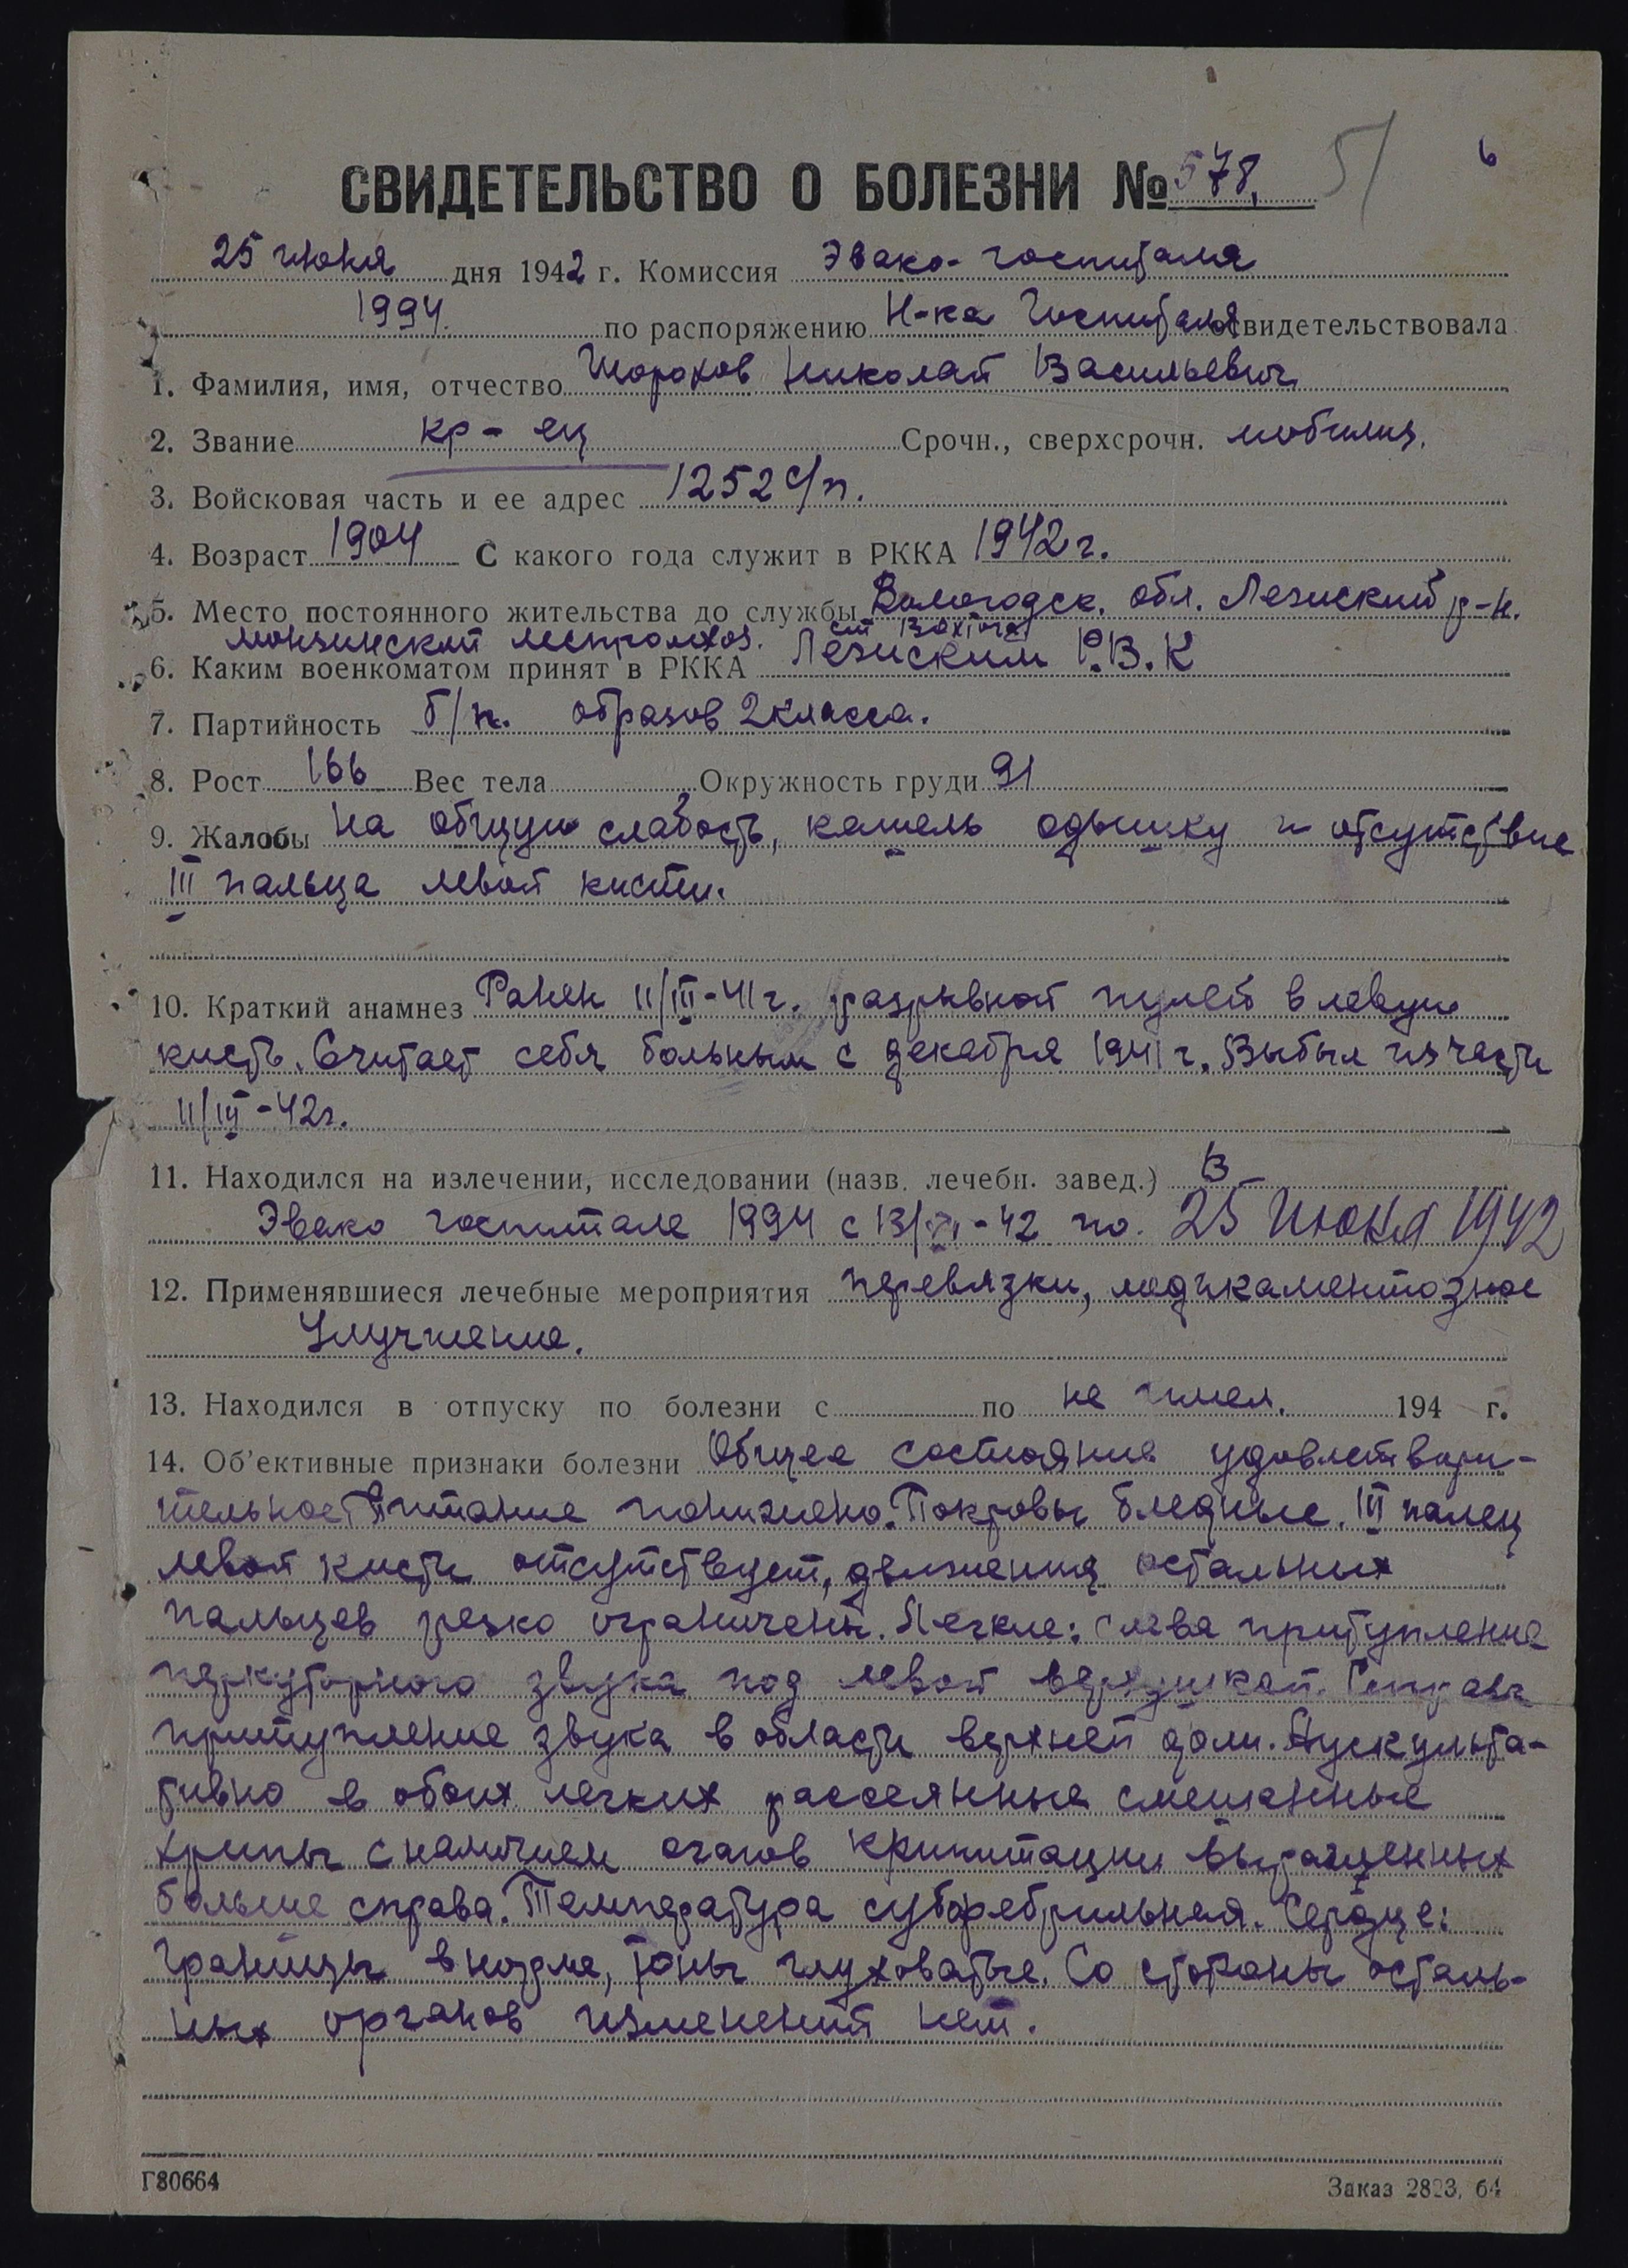 51 6
СВИДЕТЕЛЬСТВО О БОЛЕЗНИ № 578.
25 июня дня 1942 г. Комиссия Эвако-госпиталя
1994. по распоряжению Н-ка Госпиталя освидетельствовала
1. Фамилия, имя, отчество Шорохов Николай Васильевич
2. Звание кр-ец Срочн., сверхсрочн. мобилиз.
3. Войсковая часть и ее адрес 1252 с/п.
4. Возраст 1904 С какого года служит в РККА 1942 г.
5. Место постоянного жительства до службы Вологодск. обл. Лезиский р-н.
монзинский леспромхоз. ст Вохтога
6. Каким военкоматом принят в РККА Лезиским Р.В.К
7. Партийность б/п. образов 2 класса.
8. Рост 166 Вес тела Окружность груди 91
9. Жалобы На общую слабость, кашель одышку и отсутствие
III пальца левой кисти.
10. Краткий анамнез Ранен 11/III-41 г. разрывной пулей в левую
кисть. Считает себя больным с декабря 1941 г. Выбыл из части
11/III-42г.
11. Находился на излечении, исследовании (назв. лечебн. завед.) В
Эвако госпитале 1994 с 13/ -42 по. 25 Июня 1942
12. Применявшиеся лечебные мероприятия перевязки, медикаментозное
Улучшение.
13. Находился в отпуску по болезни с по не имел. 194 г.
14. Об'ективные признаки болезни Общее состояние удовлетвори-
тельное Питание понижено. Покровы бледные. III палец
левой кисти отсутствует, движения остальных
пальцев резко ограничены. Легкие: слева притупление
перкуторного звука под левой верхушкой. Справа
притупление звука в области верхней доли. Аускульта-
тивно в обоих легких рассеянные смешанные
хрипы с наличием очагов крипитации выраженных
больше справа. Температура субфебрильная. Сердце:
Границы в норме, тоны глуховатые. Со стороны осталь-
ных органов изменений нет.
Г80664 Заказ 2823, 64